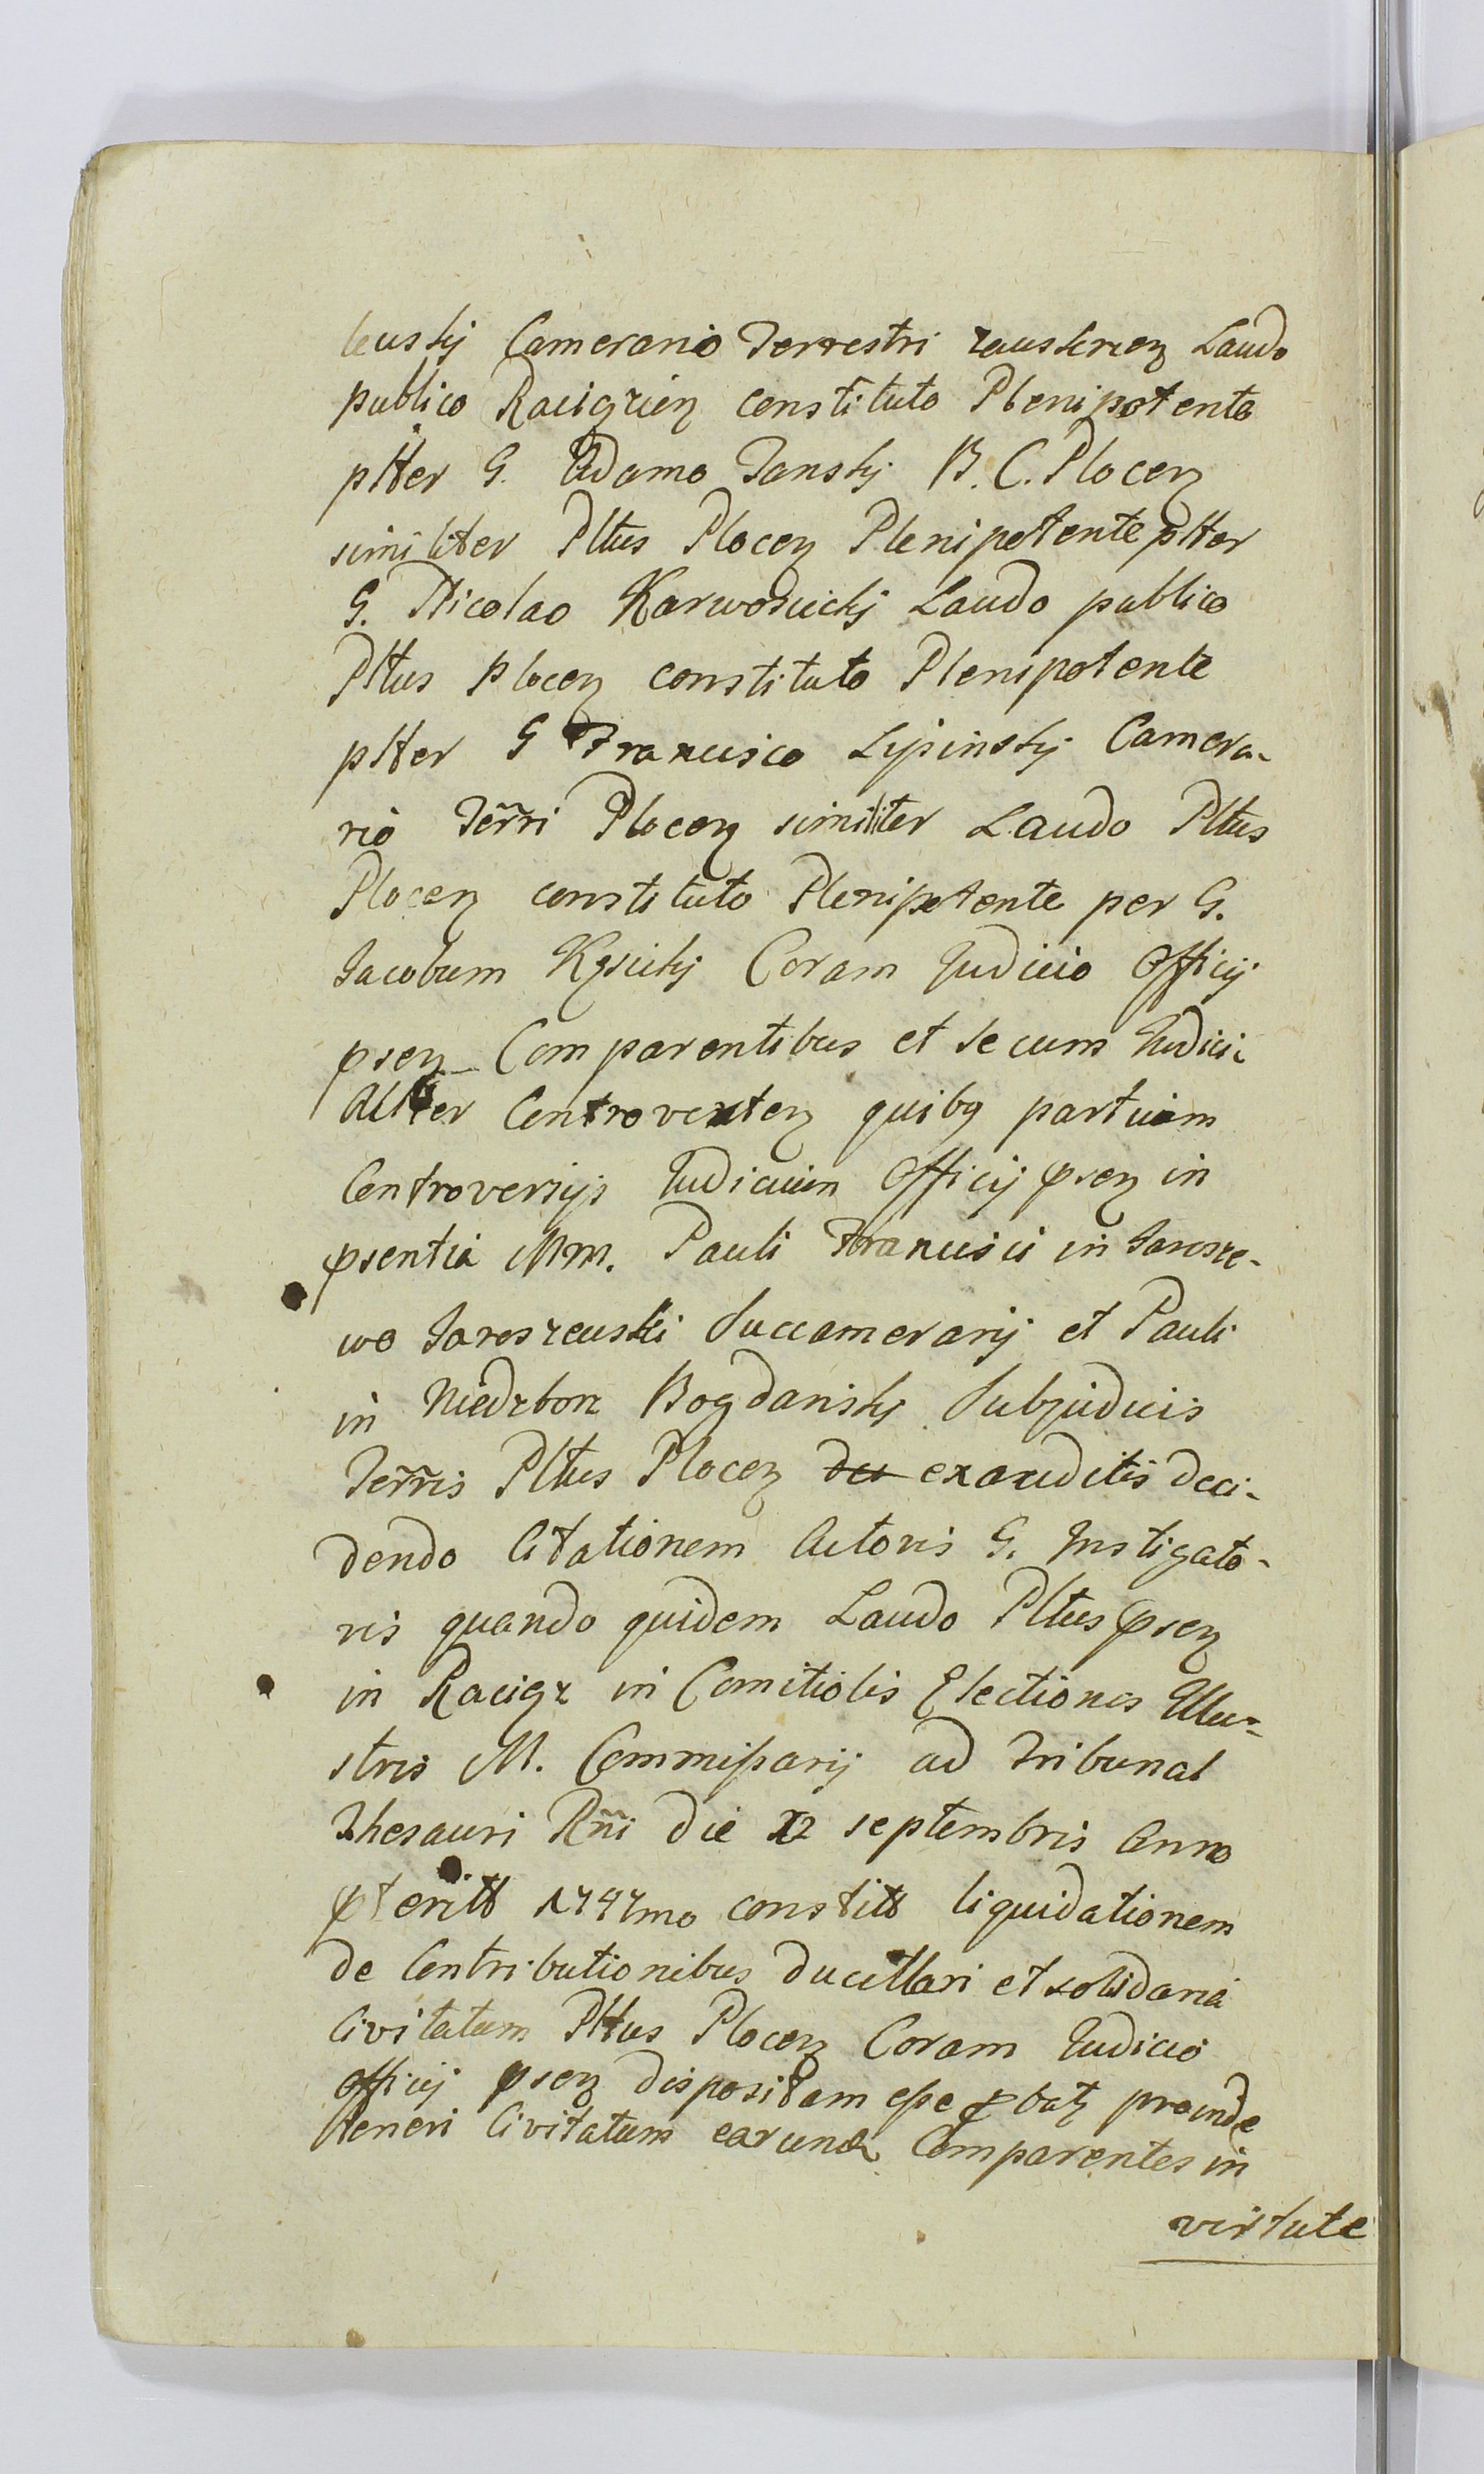 leuskj Camerario Terrestri zauskrzen Laudo
publico Raciązien constituto Plenipotente
pltter G. Adamo Janskj B. C. Plocen
similiter Plttus Plocen Plenipotente pltter
G. Nicolao Karwosieckj Laudo publico
Plttus Plocen constituto Plenipotente
pltter G Francisco Lipinskj Camera-
rio Terri Plocen similiter Laudo Plttus
Plocen constituto Plenipotente per G.
Jacobum Kęsickj Coram Judicio Officij
psen Comparentibus et secum Judici-
altter Controverten quibq partium
Controversijs Judicium Officij psen in
psentia Mm. Pauli Francisci in Jarosze-
wo Jaroszeuski Succamerarij et Pauli
in Niedzborz Bogdanskj Subjudicis
Terris Plttus Plocen exauditis deci-
dendo Citationem Actoris G. Instigato-
ris quando quidem Laudo Plttus psen
in Raciąz in Comitiolis Electionis Illu-
stris M. Commissarij ad Tribunal
Thesauri Rni die 12 septembris Anno
pteritt 1747mo constitt liquidationem
de Contributionibus ducillari et solidaria
Civitatum Plttus Plocen Coram Judicio
officij psen dispositam esse pbatz proinde
teneri Civitatum earund Comparentes in
virtute